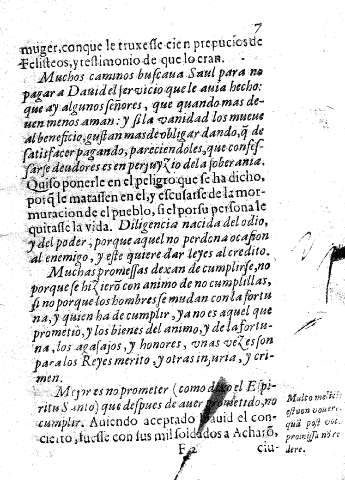 7
muger, conque le truxesse cien prepucios de
Felisteos, y testimonio de que lo eran.
Muchos caminos buscaua Saul para no
pagar a Dauid el seruicio que le auia hecho:
que ay algunos señores, que quando mas de-
uen menos aman: y si la vanidad los mueue
al beneficio, gustan mas de obligar dando, q̃ de
satisfacer pagando, pareciendoles, que confes-
sarse deudores es en perjuyzio de la soberania.
Quiso ponerle en el peligro que se ha dicho,
porq̃ le matassen en el, y escusarse de la mor-
muracion de el pueblo, si el por su persona le
quitasse la vida. Diligencia nacida del odio,
y del poder, porque aquel no perdona ocasion
al enemigo, y este quiere dar leyes al credito.
Muchas promessas dexan de cumplirse, no
porque se hizierõ con animo de no cumplillas,
si no porque los hombres se mudan con la fortu
na, y quien ha de cumplir, ya no es aquel que
prometio, y los bienes del animo, y de la fortu-
na, los agasajos, y honores, vnas vezes son
para los Reyes merito, y otras injuria, y cri-
men.
Mejor es no prometer (como dixo el Espi-
ritu Santo) que despues de auer prometido, no
cumplir. Auiendo aceptado Dauid el con-
cierto, fuesse con sus mil soldados a Acharõ,
ciu-
Multo meli
est non vouere,
quã post vot
promissa no re
dere.